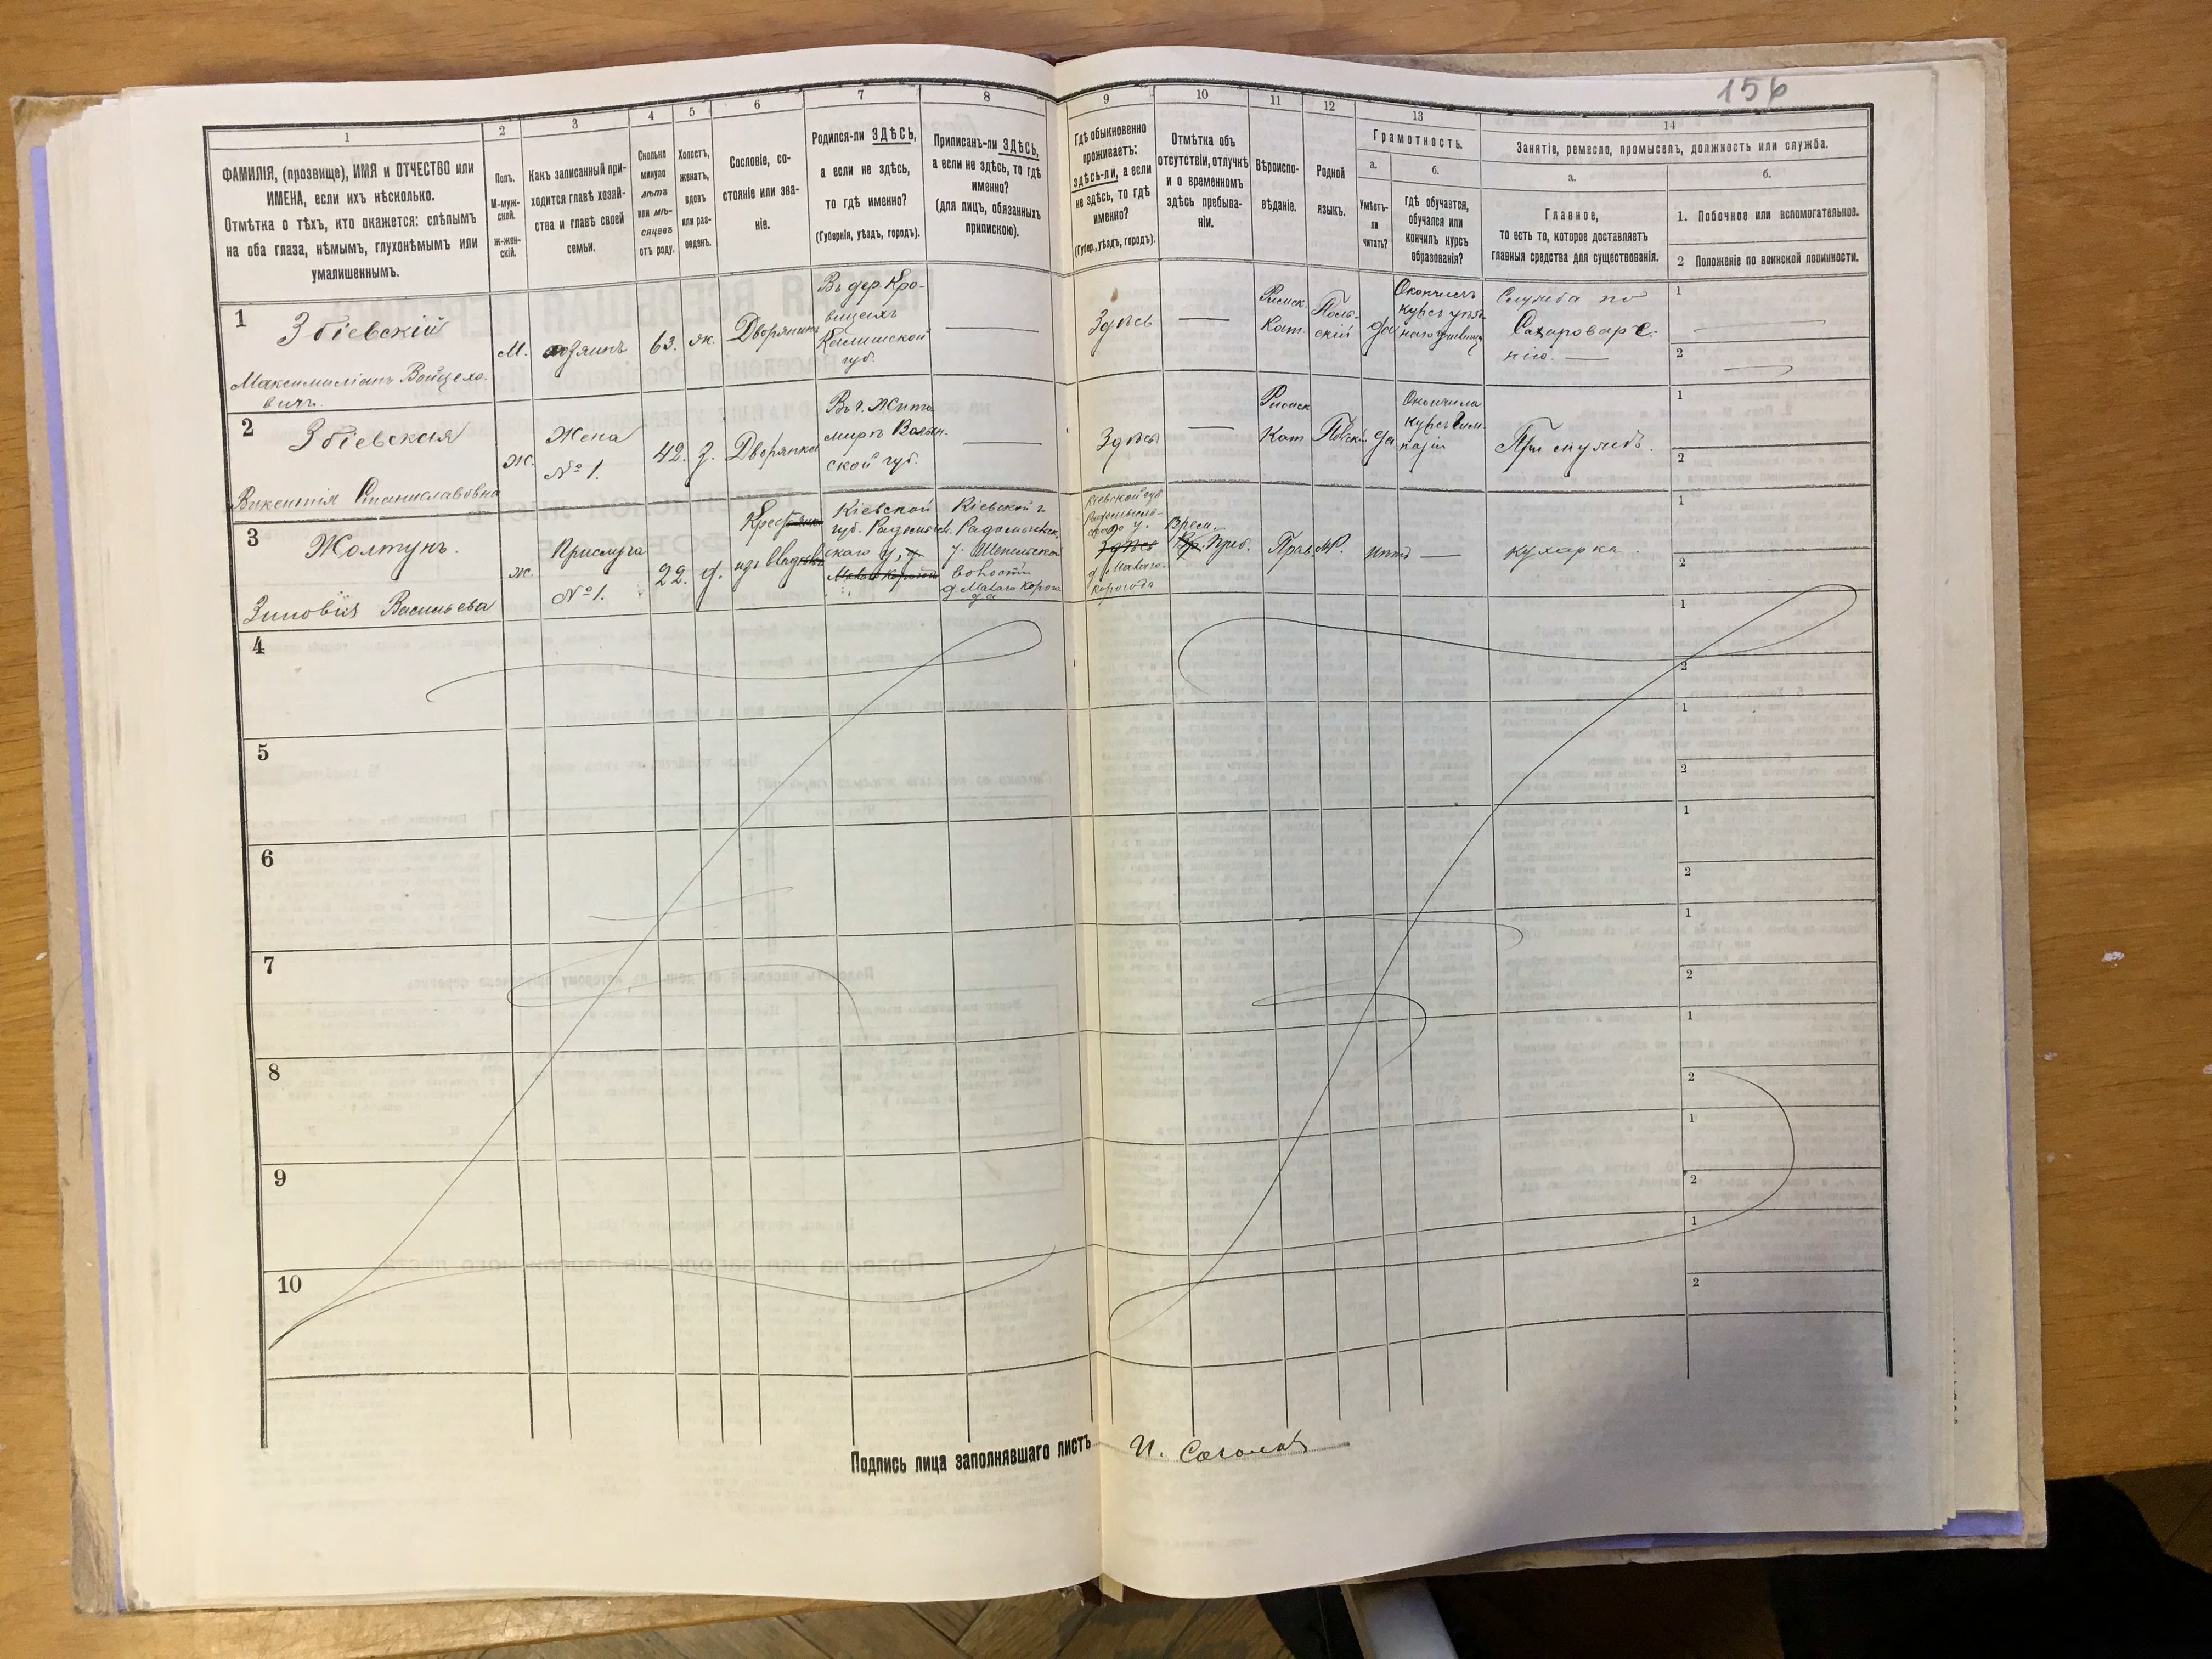 156
1
2
3
4
5
6
7
8
9
10
11
12
13
14
ФАМИЛІЯ, (прозвище), ИМЯ и ОТЧЕСТВО или
ИМЕНА, если ихъ нѣсколько.
Отмѣтка о тѣхъ, кто окажется: слѣпымъ
на оба глаза, нѣмымъ, глухонѣмымъ или
умалишеннымъ.
Полъ.
М-муж-
ской.
Ж-жен-
скій.
Какъ записанный при-
ходится главѣ хозяй-
ства и главѣ своей
семьи.
Сколько
минуло
лѣтъ
или мѣ-
сяцевъ
отъ роду.
Холостъ,
женатъ,
вдовъ
или раз-
веденъ.
Сословіе, со-
стояніе или зва-
ніе.
Родился-ли ЗДѢСЬ,
а если не здѣсь,
то гдѣ именно?
(Губернія, уѣздъ, городъ).
Приписанъ-ли ЗДѢСЬ,
а если не здѣсь, то гдѣ
именно?
(для лицъ, обязанныхъ
припискою).
Гдѣ обыкновенно
проживаетъ:
здѣсь-ли, а если
не здѣсь, то гдѣ
именно?
(Губер., уѣздъ, городъ).
Отмѣтка объ
отсутствіи, отлучкѣ
и о временномъ
здѣсь пребыва-
ніи.
Вѣроиспо-
вѣданіе.
Родной
языкъ.
Грамотность.
а.
Умѣетъ-
ли
читать?
б.
Гдѣ обучается,
обучался или
кончилъ курсъ
образованія?
Занятіе, ремесло, промыселъ, должность или служба.
а.
Главное,
то есть то, которое доставляетъ
главныя средства для существованія.
б.
1. Побочное или вспомогательное.
2 Положеніе по воинской повинности.
1
Збіевскій
Максимиліанъ Войцехо-
вичъ.
М.
хозяинъ
63.
ж.
Дворянинъ
Въ дер. Кро-
вицахъ
Калишской
губ.
Здѣсь
Римск.
Кат.
Поль-
скій
да
Окончилъ
курсъ
Служба по
Сахароваре-
нію.
1
2
2
Збіевская
Викентія Станиславовна
Ж.
Жена
№ 1.
42.
з.
Дворянка
Въ г. Жито-
мирѣ Волын-
ской губ.
Здѣсь
Римск
Кат
да
Окончила
курсъ Гим-
назіи
При мужѣ.
1
2
3
Жолтунъ.
Зиновія Васильева
ж.
Прислуга
№ 1.
22.
д.
Кіевской
губ. Радомысл.
Кіевской г.
Радомысльск.
у. Шепельской
волости
д Малаго Корого
да
Кіевской губ
Радомысль-
скаго у.
Здѣсь
д Малаго-
Корогода
Врем.
преб.
Прав.
МР.
нѣтъ
кухарка.
1
2
4
1
2
5
1
2
6
1
2
7
1
2
8
1
2
9
1
2
10
1
2
Подпись лица заполнявшаго листъ